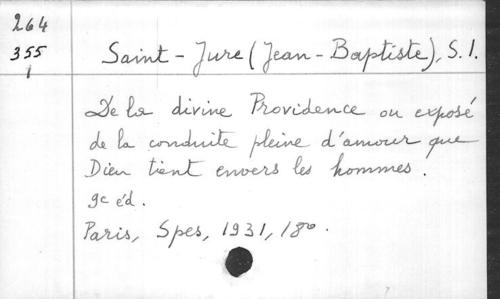 264
355
1
Saint-Jure (Jean-Baptiste), S.I.
De la divine Providence ou exposé
de la conduite pleine d'amour que
Dieu tient envers les hommes.
9e éd.
Paris, Spes, 1931, 18o.